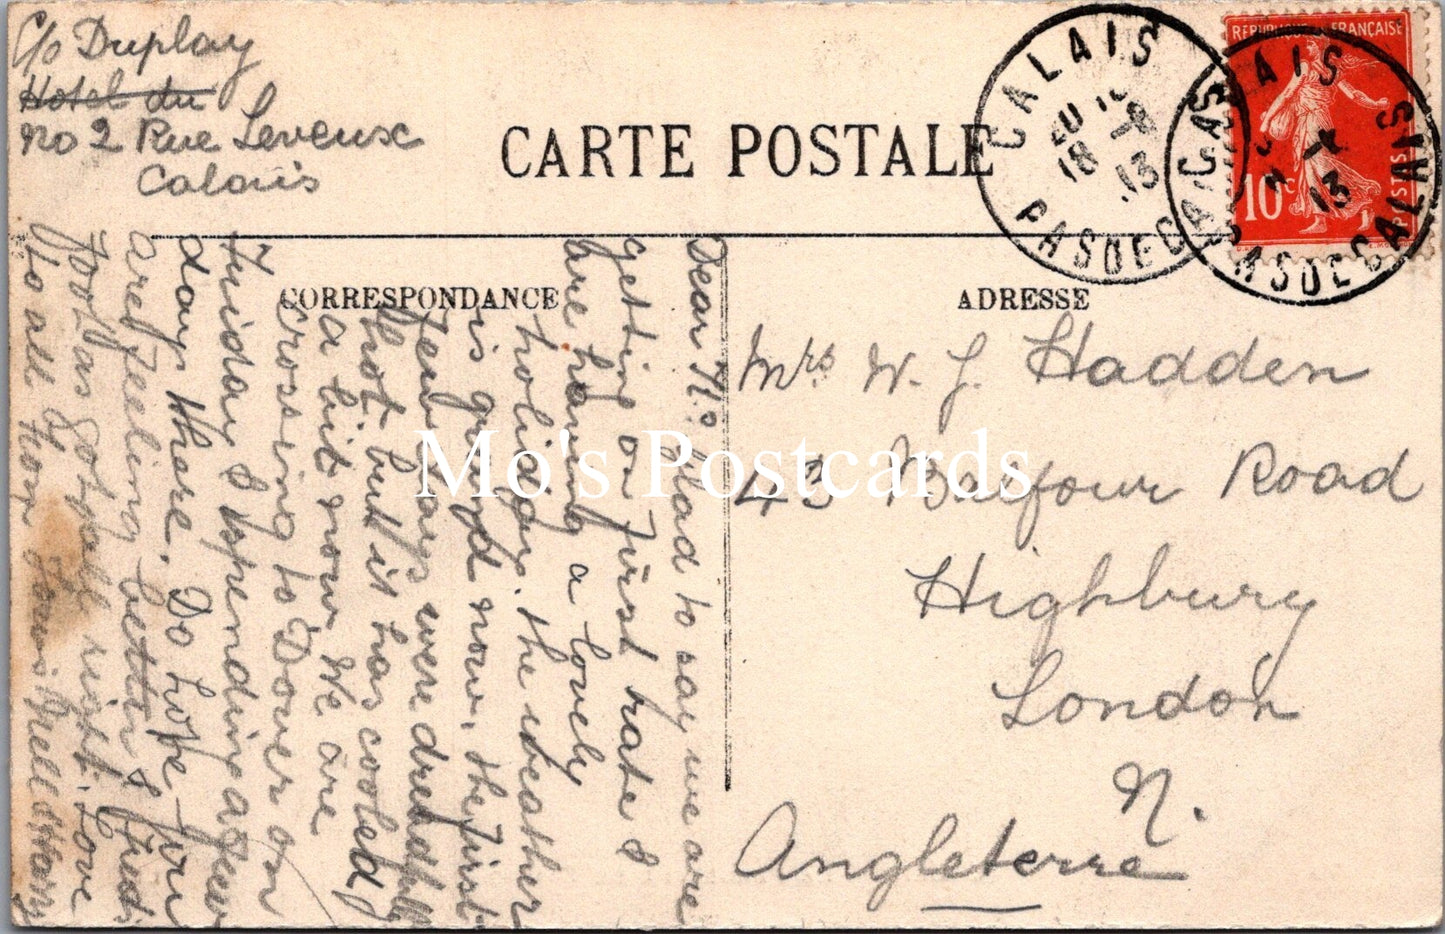 C/o Duplay
Hotel du
No 2 Rue Leveux
Calais
CARTE POSTALE
CALAIS
18 -8 13
PAS DE CALAIS
CALAIS
13
PAS DE CALAIS
REPUBLIQUE FRANÇAISE
10c
POSTES
CORRESPONDANCE
ADRESSE
Dear M. Glad to say we are
getting on first rate &
are having a lovely
holiday. the weather
is grand now, the first
few days were dreadfully
hot but it has cooled
a bit now We are
crossing to Dover on
Friday & spending a few
days there. Do hope you
are feeling better & Fred's
foot has got quite right. Love
to all from Nell & Harry
Mrs W. J. Hadden
43 Balfour Road
Highbury
London
N.
Angleterre
Mo's Postcards